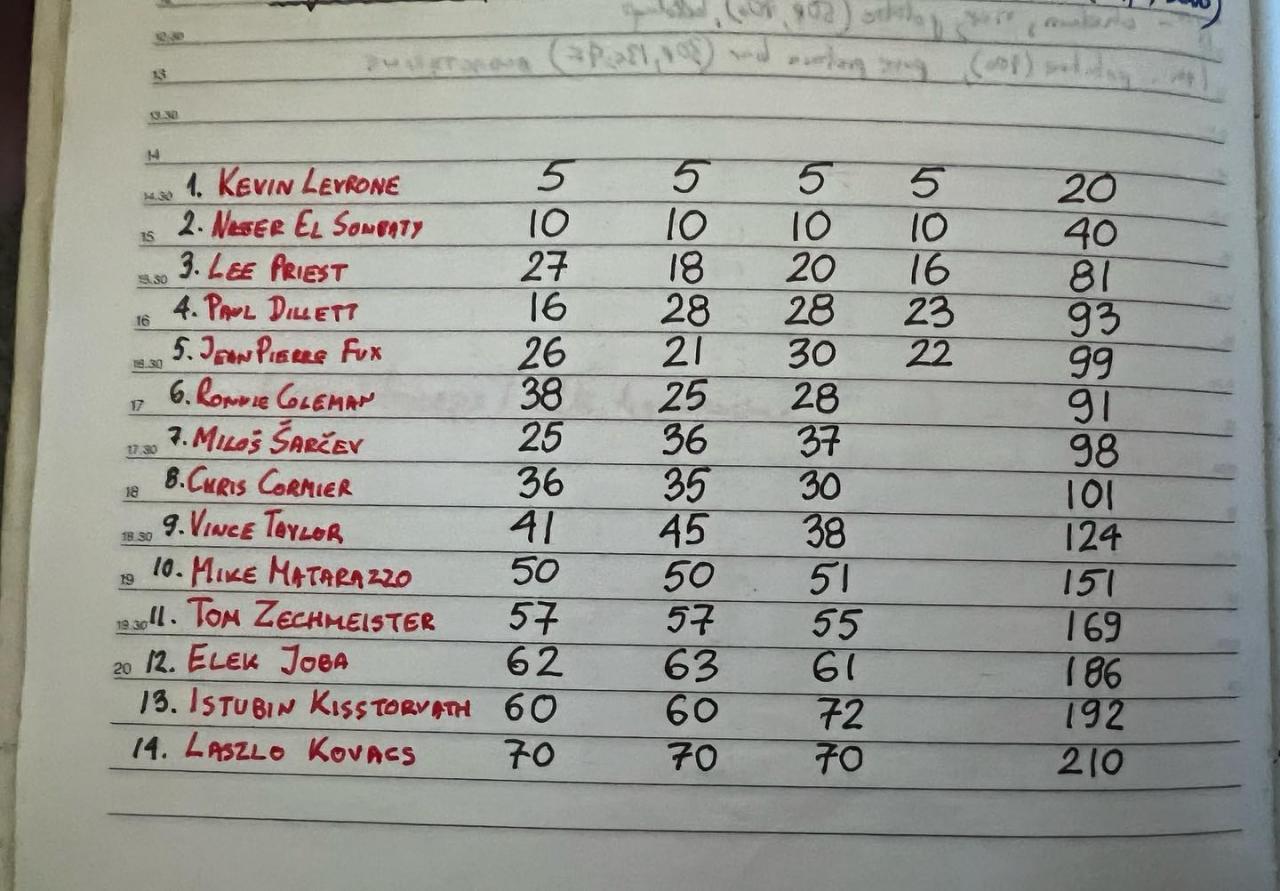 12.30
13
13.30
14
14.30 1. KEVIN LEVRONE 5 5 5 5 20
15 2. NASER EL SONBATY 10 10 10 10 40
15.30 3. LEE PRIEST 27 18 20 16 81
16 4. PAUL DILLETT 16 28 28 23 93
16.30 5. JEAN PIERRE FUX 26 21 30 22 99
17 6. RONNIE COLEMAN 38 25 28 91
17.30 7. MILOŠ ŠARČEV 25 36 37 98
18 8. CHRIS CORMIER 36 35 30 101
18.30 9. VINCE TAYLOR 41 45 38 124
19 10. MIKE MATARAZZO 50 50 51 151
19.30 11. TOM ZECHMEISTER 57 57 55 169
20 12. ELEK JOBA 62 63 61 186
13. ISTUBIN KISSTORVATH 60 60 72 192
14. LASZLO KOVACS 70 70 70 210